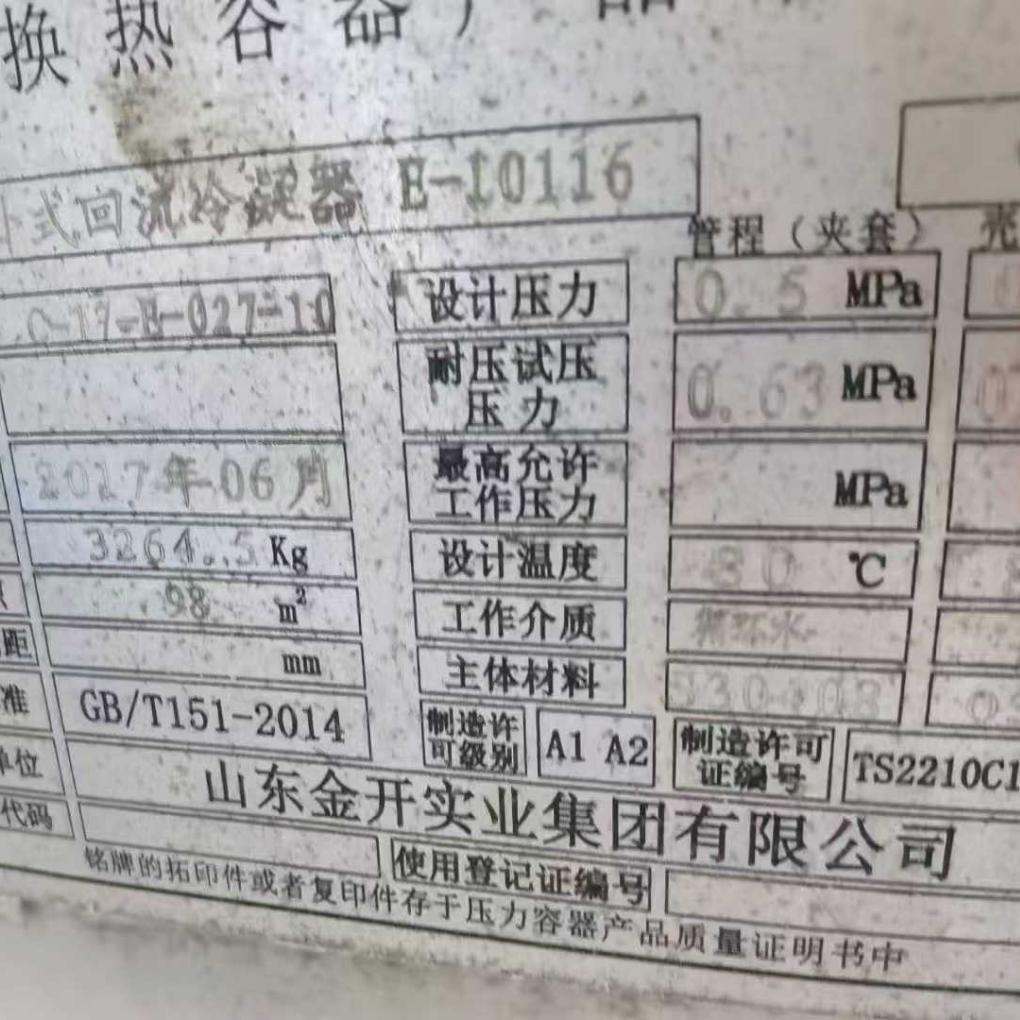 换热容器产品
式回流冷凝器 E-10116
管程（夹套） 壳
C-17-B-027-10 设计压力 0.5 MPa
耐压试压压力 0.63 MPa
2017年06月 最高允许工作压力 MPa
3264.5 Kg 设计温度 80 ℃
98 m² 工作介质 循环水
距 mm 主体材料 S30408
准 GB/T151-2014 制造许可级别 A1 A2 制造许可证编号 TS2210C1
单位 山东金开实业集团有限公司
代码 使用登记证编号
铭牌的拓印件或者复印件存于压力容器产品质量证明书中